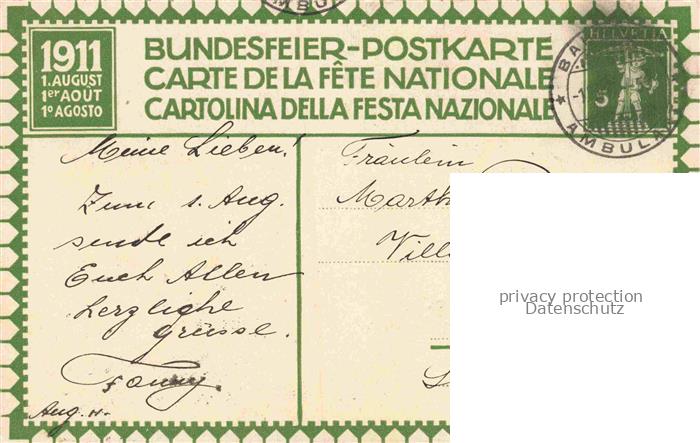 1911
1. AUGUST
1er AOÛT
1º AGOSTO
BUNDESFEIER-POSTKARTE
CARTE DE LA FÊTE NATIONALE
CARTOLINA DELLA FESTA NAZIONALE
HELVETIA
5
AMBULA
Meine Lieben!
Zum 1. Aug.
sende ich
Euch Allen
herzliche
Grüsse.
Fanny.
Aug. 11.
Fräulein
Marth
Vill
privacy protection
Datenschutz